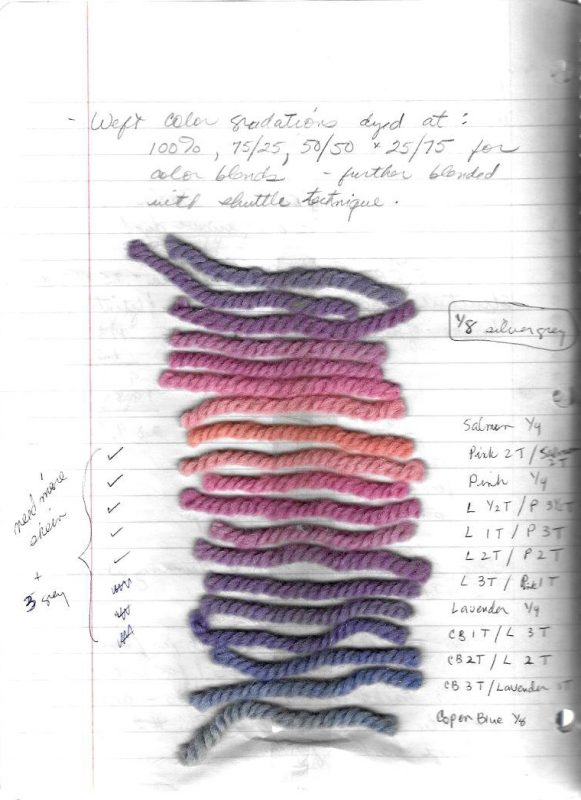 - Weft color gradations dyed at :
100%, 75/25, 50/50 + 25/75 for
color blends - further blended
with shuttle technique.
1/8 silver grey
Salmon 1/4
Pink 2 T / Salmon 2 T
Pink 1/4
L 1/2 T / P 3 1/2 T
L 1 T / P 3 T
L 2 T / P 2 T
L 3 T / Pink 1 T
Lavender 1/4
CB 1 T / L 3 T
CB 2 T / L 2 T
CB 3 T / Lavender 1 T
Copen Blue 1/8
need more
skein
+
3 grey